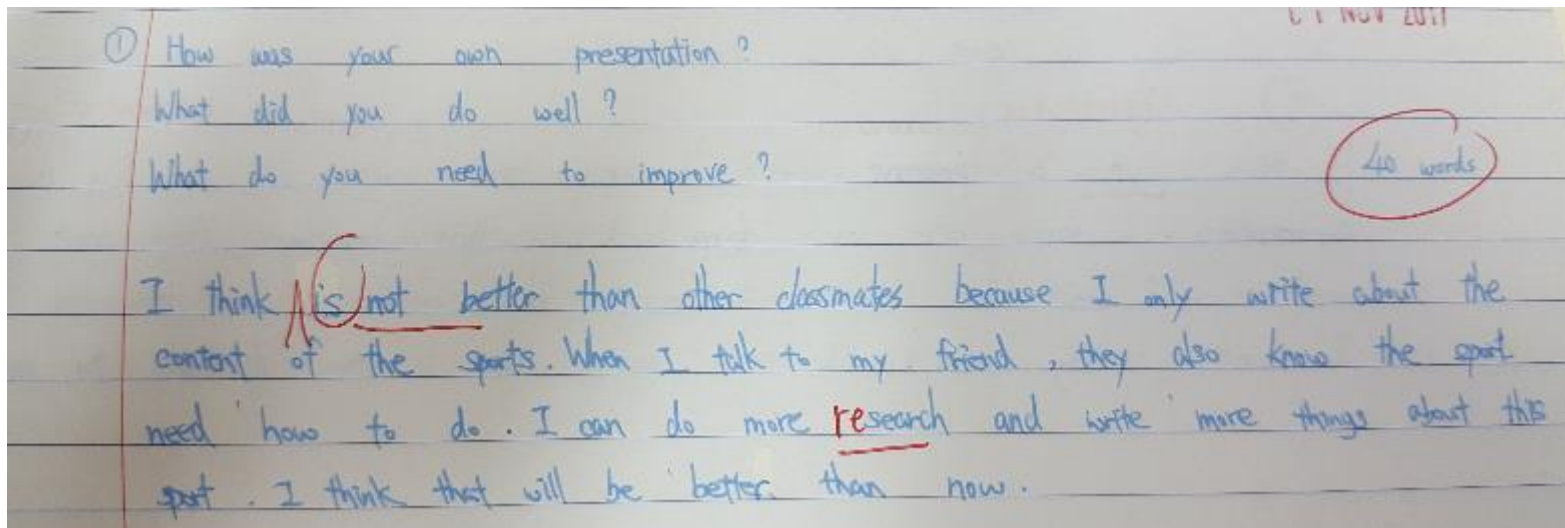 ① How was your own presentation ?
What did you do well ?
What do you need to improve ?
40 words
I think is not better than other classmates because I only write about the
content of the sports. When I talk to my friend , they also know the sport
need how to do . I can do more research and write more things about this
sport . I think that will be better than now .